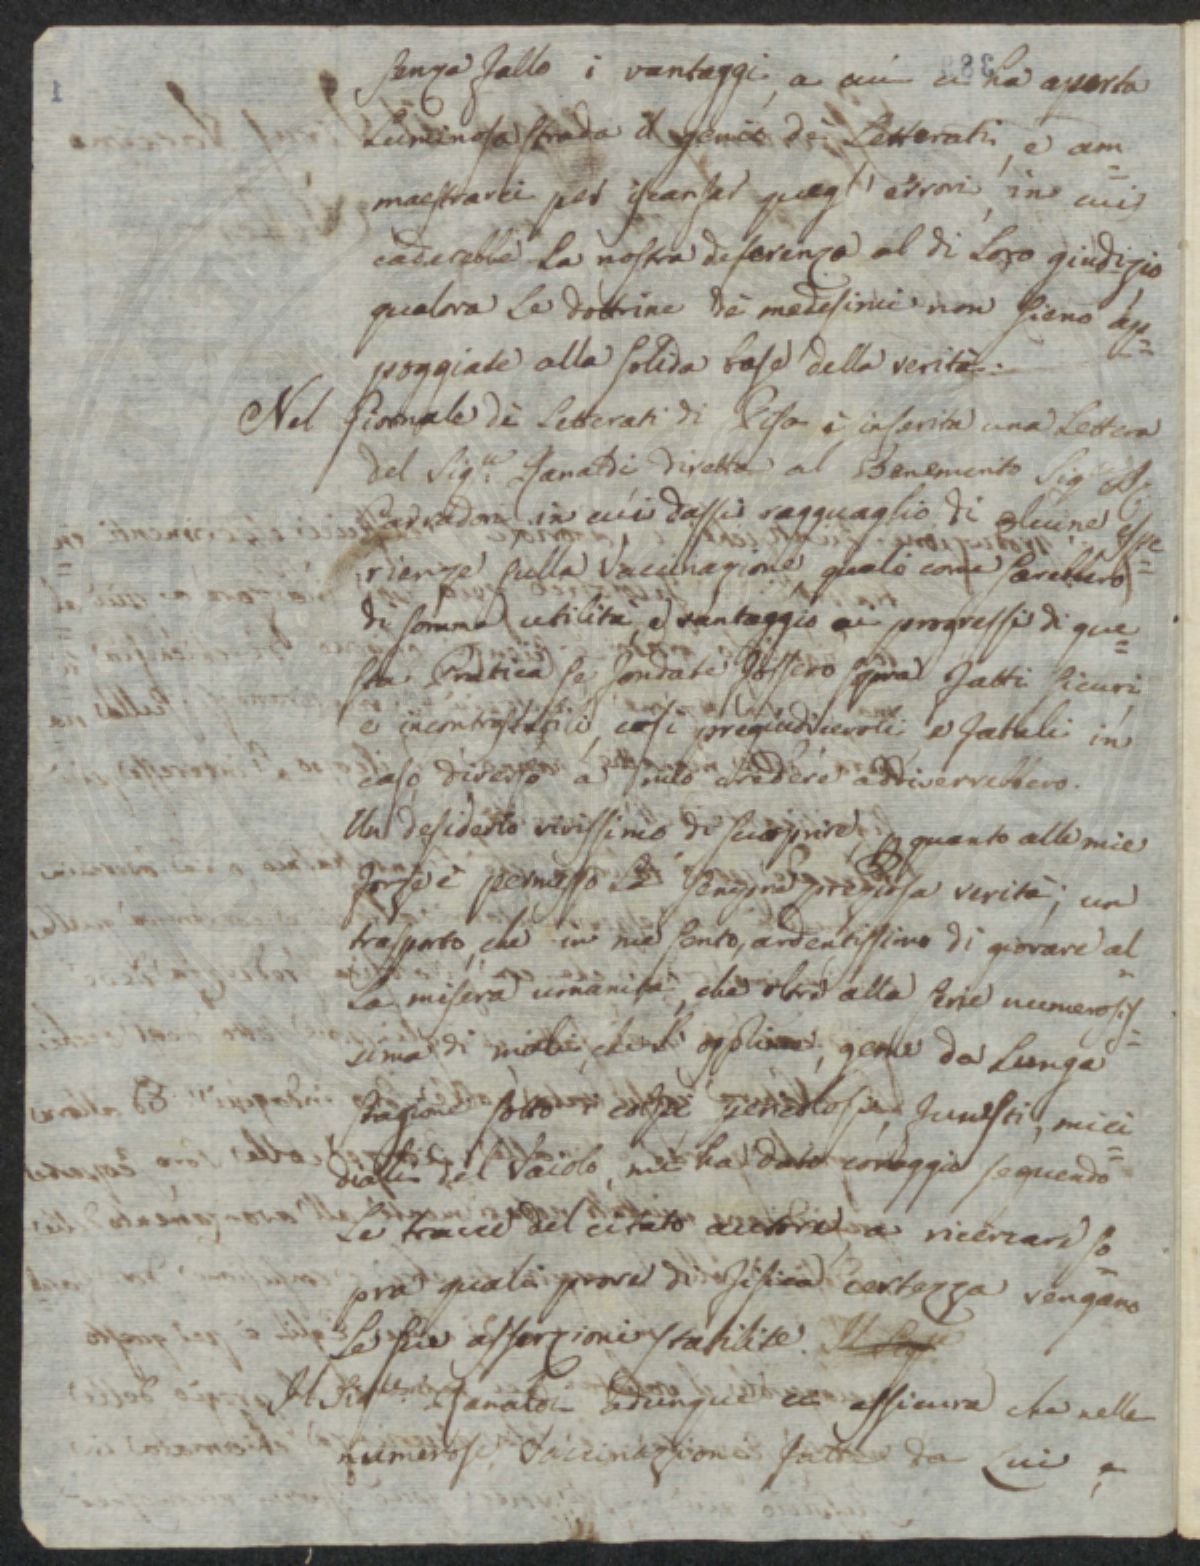 senza fallo i vantaggi, a cui ci ha aperta
luminosa strada il genio de' Letterati, e am=
maestrarci per iscansar quegl' errori, in cui
caderebbe la nostra deferenza al di loro giudizio,
qualora le dottrine de' medesimi non sieno ap=
poggiate alla solida base della verità.
Nel Giornale de' Letterati di Pisa è inserita una Lettera
del Sig.re Zanatdi diretta al Benemerito Sig.
Carradori in cui dassi ragguaglio di alcune espe=
rienze sulla Vaccinazione quali come sarebbero
di somma utilità, e vantaggio ai progressi di que=
sta Pratica se fondate fossero sopra fatti sicuri
e incontrastabili, così pregiudicevoli e fatali in
caso diverso a mio credere addiverrebbero.
Un desiderio vivissimo di scuoprire, quanto alle mie
forze è permesso la sempre preziosa verità; un
trasporto, che in me sento, ardentissimo di giovare al=
la misera umanità, che oltre alla serie numerosis=
sima di mali, che l' opprime, geme da lunga
stagione sotto i colpi pericolosi, funesti, mici=
diali del Vaiolo, mi ha dato coraggio seguendo
le tracce del citato autore a ricercare so=
pra quali prove di fisica certezza vengano
le sue asserzioni stabilite.
Il Sig.re Zanatdi adunque ci assicura che nelle
numerose Vaccinazioni fatte da Lui e